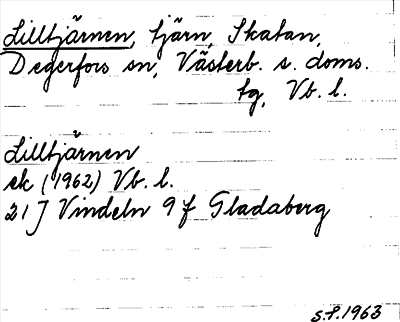 Lilltjärnen, tjärn, Skatan,
Degerfors sn, Västerb. s. doms.
tg, Vb. l.
Lilltjärnen
ek (1962) Vb. l.
21 J Vindeln 9 f Gladaberg
S.P. 1963